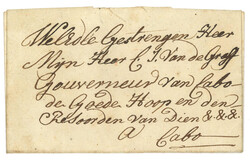 WelEdle Gestrengen Heer
Mijn Heer C. J. Van de Graff
Gouverneur van Cabo
de Goede Hoop en den
Ressorden van Dien &&&
A Cabo